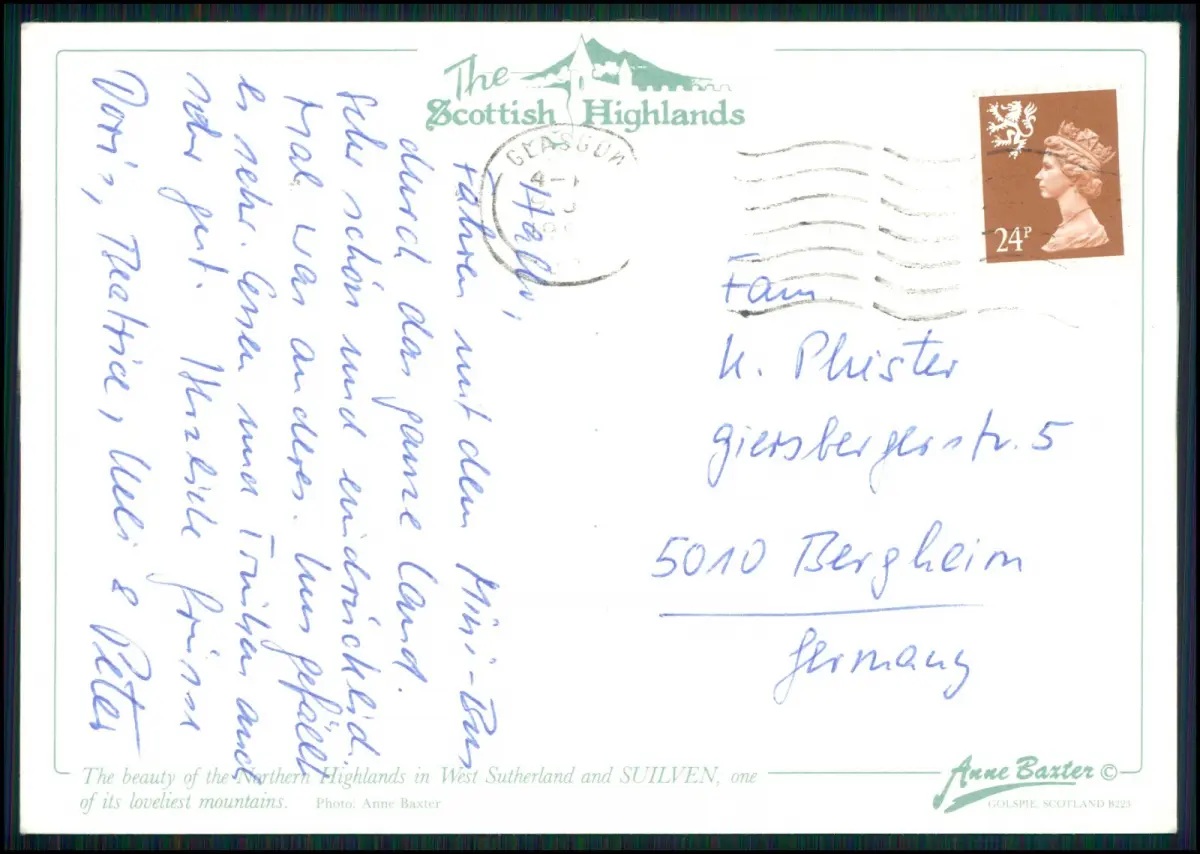 The
Scottish Highlands
GLASGOW
24P
Hallo,
Fahren mit dem Mini-Bus
durch das ganze Land.
Sehr schön und eindrücklich.
Mal was anderes. Uns gefällt
es sehr. Essen und Trinken auch
sehr gut. Herzliche Grüsse
Doris, Ueli & Peter
Fam.
K. Phister
Giersbergerstr. 5
5010 Bergheim
Germany
The beauty of the Northern Highlands in West Sutherland and SUILVEN, one
of its loveliest mountains. Photo: Anne Baxter
Anne Baxter ©
GOLSPIE, SCOTLAND B223